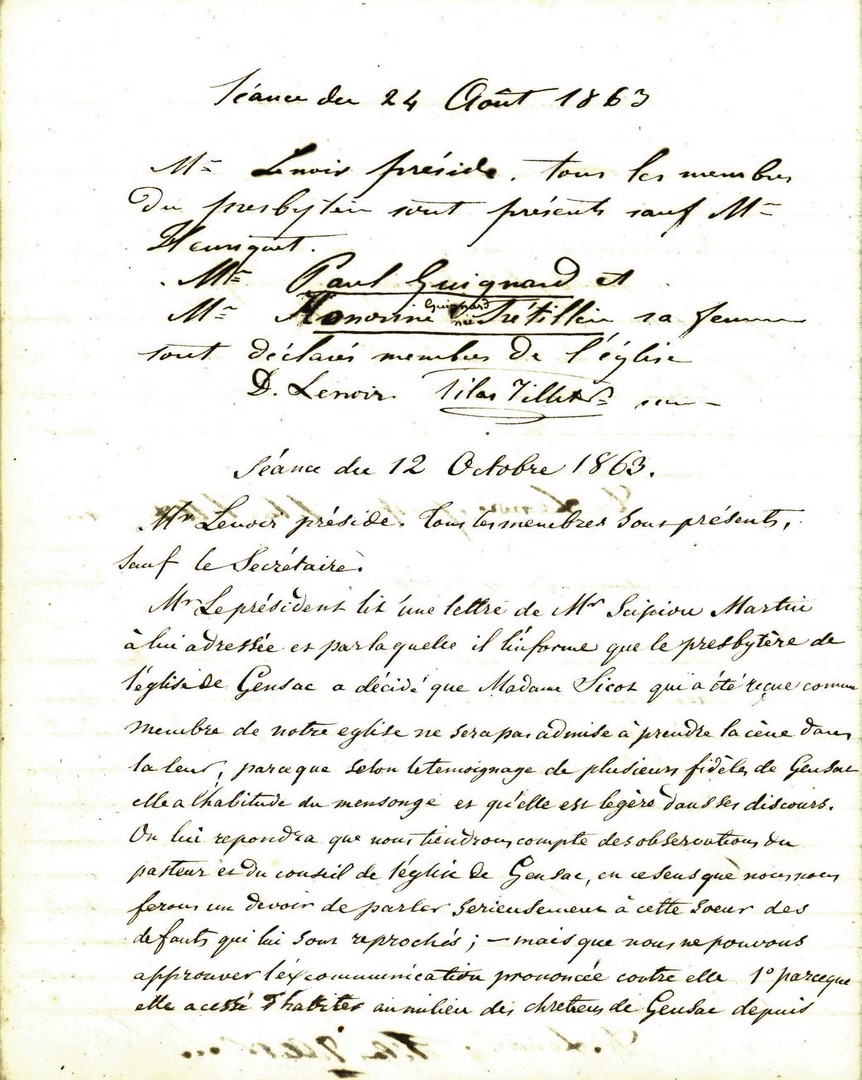 Séance du 24 Août 1863
Mr Lenoir préside. tous les membres
du presbytère sont présents sauf Mr
Hunziquet.
Mr Paul Guignard et
Me Honorine Guignard née Trétillien sa femme
sont déclarés membres de l'église
D. Lenoir. Silas Tillet
Séance du 12 Octobre 1863.
Mr Lenoir préside. Tous les membres sont présents,
sauf le Secrétaire.
Mr Le président lit une lettre de Mr Scipion Martin
à lui adressée et par laquelle il l'informe que le presbytère de
l'église de Gensac a décidé que Madame Sicot qui a été reçue comme
membre de notre eglise ne sera pas admise à prendre la cène dans
la leur, parceque selon le temoignage de plusieurs fidèles de Gensac
elle a l'habitude du mensonge et qu'elle est legère dans ses discours.
On lui repondra que nous tiendrons compte des observations du
pasteur et du conseil de l'église de Gensac, en ce sens que nous nous
ferons un devoir de parler serieusement à cette soeur des
defauts qui lui sont reprochés ; — mais que nous ne pouvons
approuver l'excommunication prononcée contre elle 1° parceque
elle a cessé d'habiter au milieu des chretiens de Gensac depuis